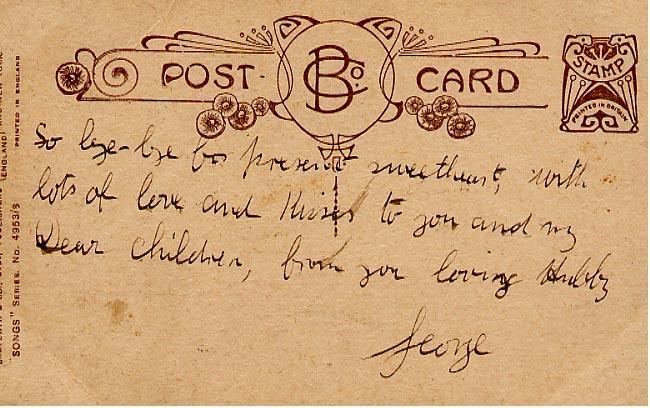 POST CARD
B Co.
STAMP
PRINTED IN BRITAIN
So bye-bye for present sweetheart, with
lots of love and Kisses to you and my
Dear children, from you loving Hubby
George
"SONGS" SERIES. No. 4953/3
(ENGLAND)
PRINTED IN ENGLAND